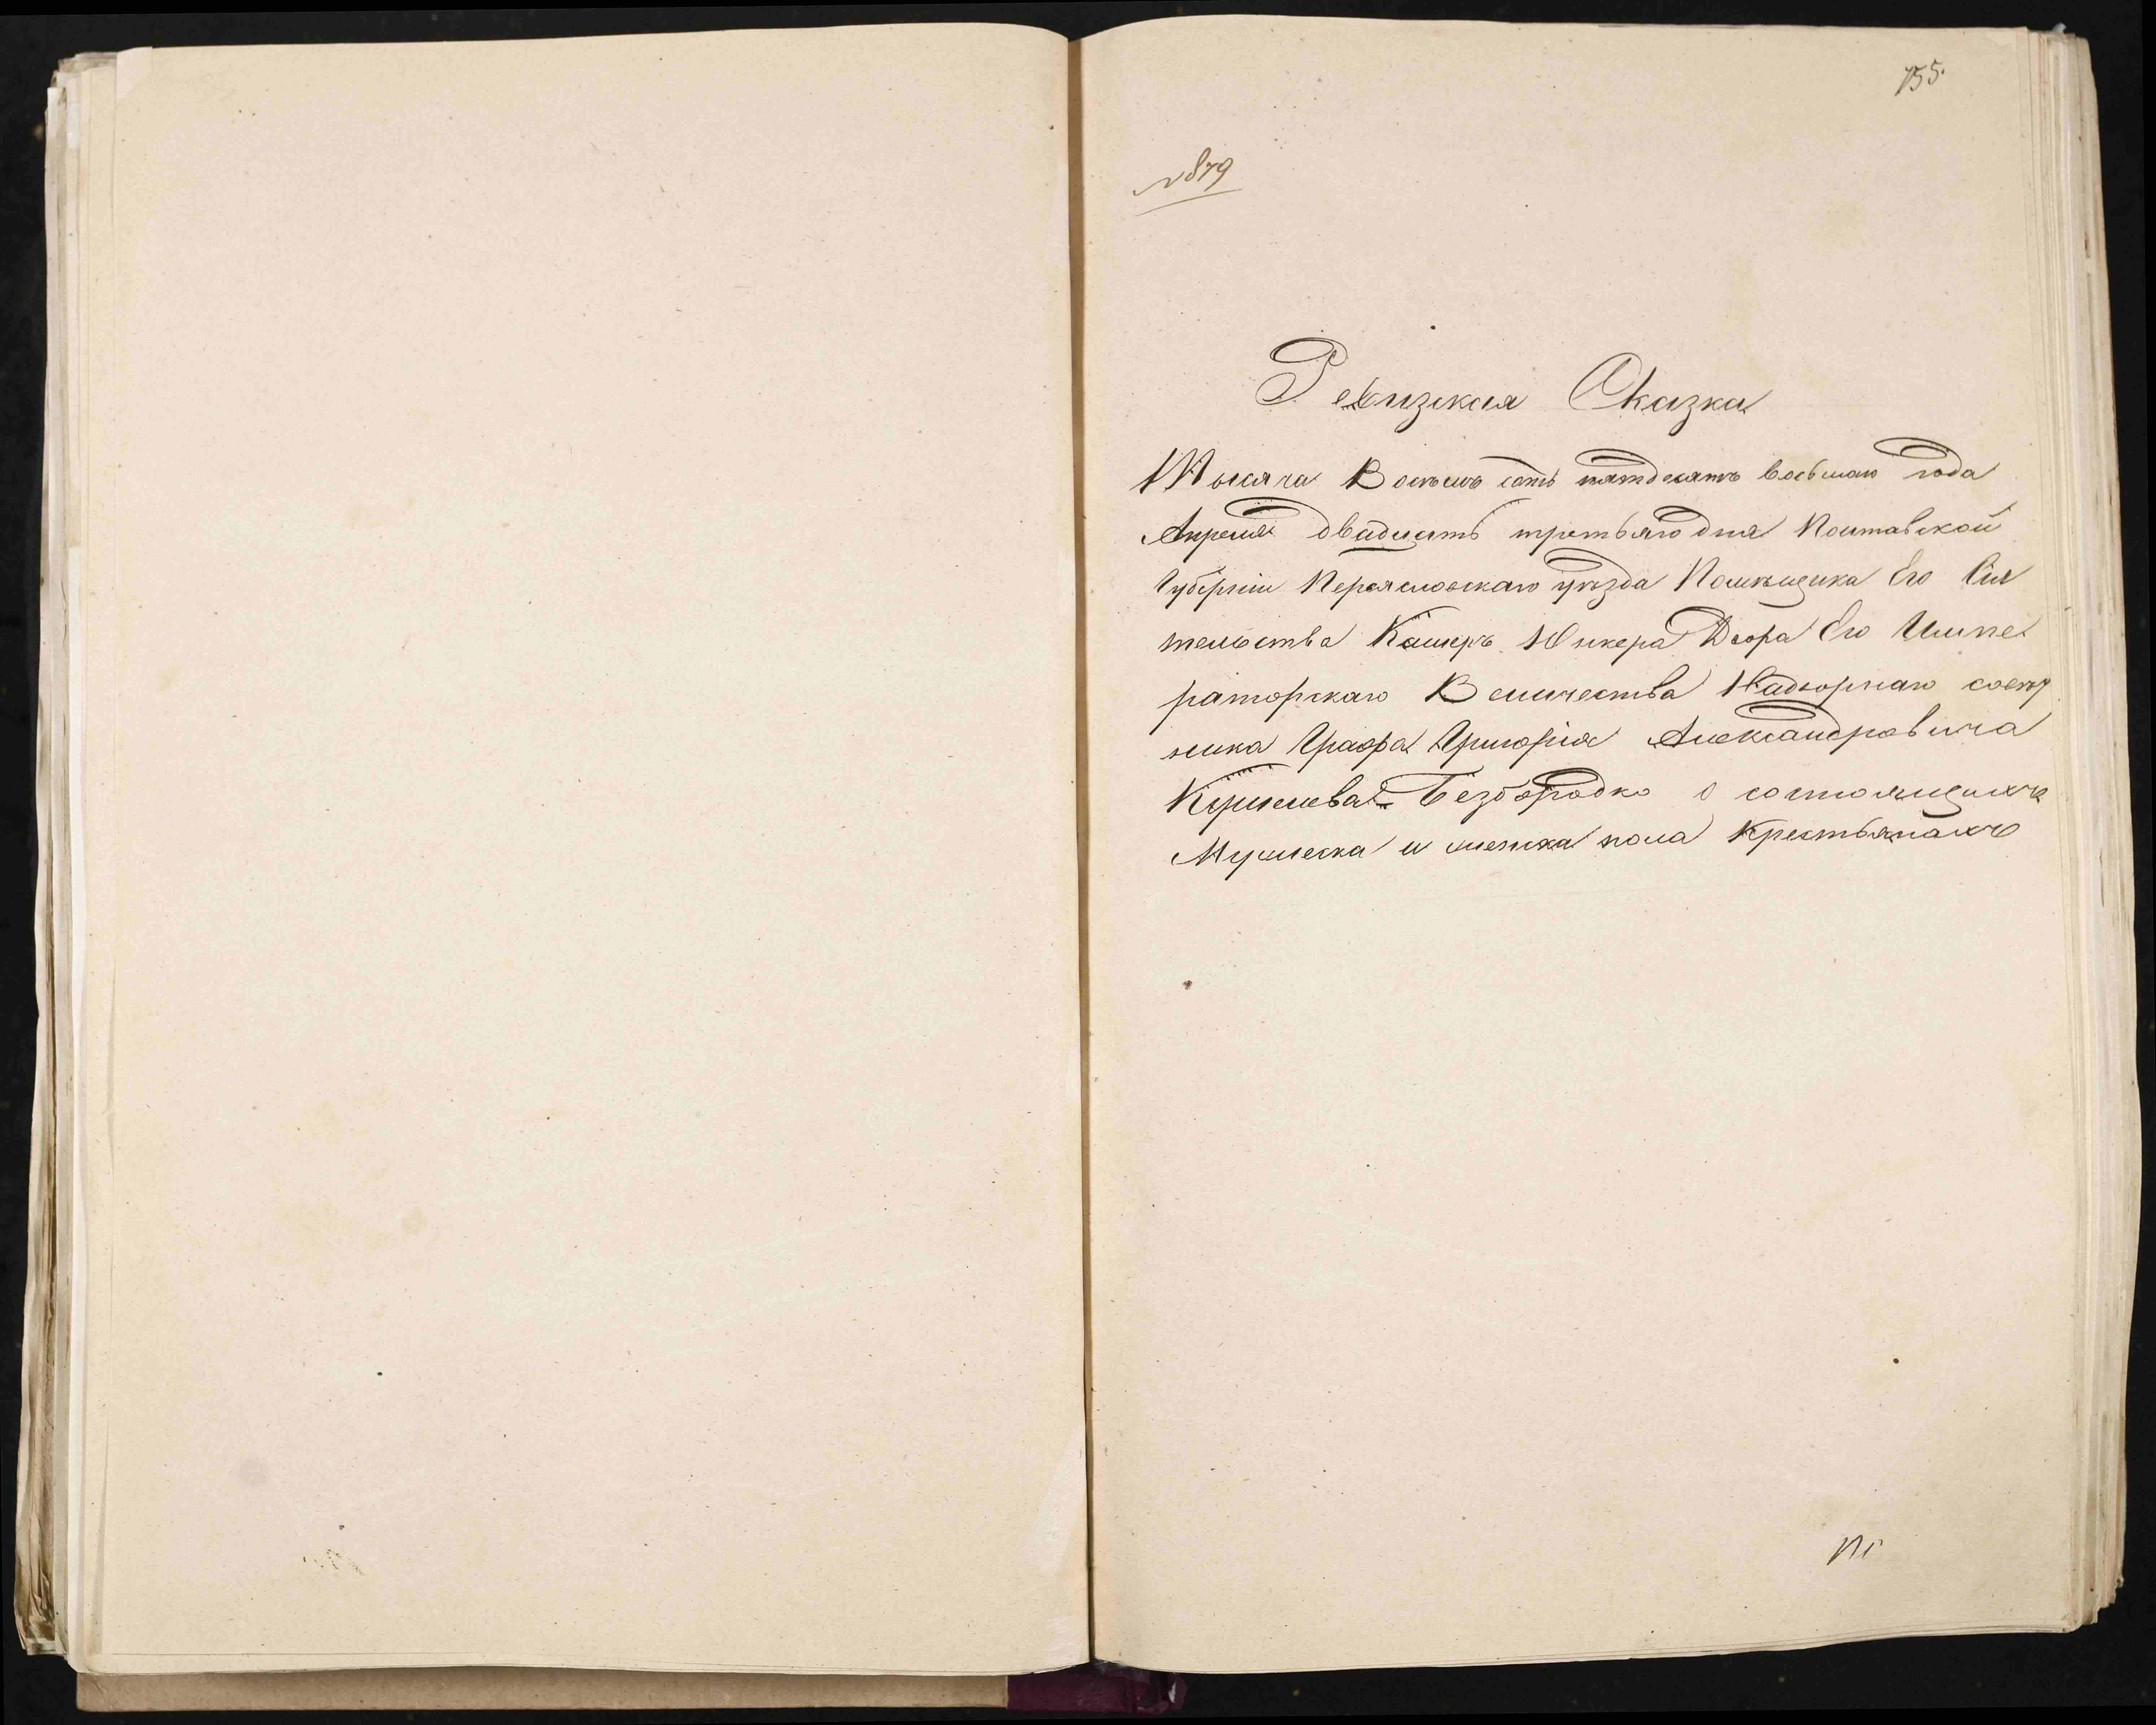 155.
№879
Ревизская Сказка
Тысяча Восемь сотъ пятдесятъ восьмаго года
Апреля двадцать третьяго дня Полтавской
Губерніи Переясловскаго уѣзда Помѣщика Его Сія
тельства Камеръ Юнкера Двора Его Импе
раторскаго Величества Надворнаго совѣт
ника Графа Григорія Александровича
Кушелева-Безбородко о состоящихъ
Мужеска и женска пола Крестьянахъ